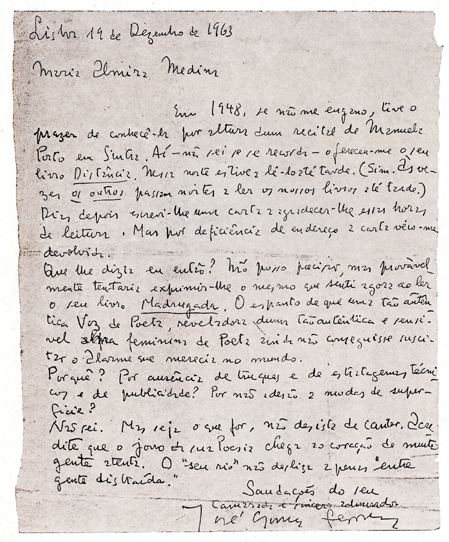 Lisboa 19 de Dezembro de 1963
Maria Almira Medina
Em 1948, se não me engano, tive o
prazer de conhecê-la por altura dum recital de Manuela
Porto em Sintra. Aí - não sei se se recorda - ofereceu-me o seu
livro Distância. Nessa noite estive a lê-lo até tarde. (Sim. Às ve-
zes os outros passam noites a ler os nossos livros até tarde.)
Dias depois escrevi-lhe uma carta a agradecer-lhe essas horas
de leitura. Mas por deficiência de endereço a carta vêio-me
devolvida.
Que lhe dizia eu então? Não posso precisar, mas provável
mente tentaria exprimir-lhe o mesmo que senti agora ao ler
o seu livro Madrugada. O espanto de que uma tão autên-
tica Voz de Poeta, reveladora duma tão autêntica e sensí-
vel feminina de Poeta ainda não conseguisse susci-
tar o alarme que merecia no mundo.
Porquê? Por ausência de truques e de estratagemas técni-
cos e de publicidade? Por não adesão a modas de super-
fície?
Não sei. Mas seja o que for, não desista de cantar. Acre
dite que o jorro da sua Poesia chega ao coração de muita
gente atenta. O "seu rio" não desliza apenas "entre
gente distraída."
Saudações do seu
Camarada e sincero admirador
José Gomes Ferreira